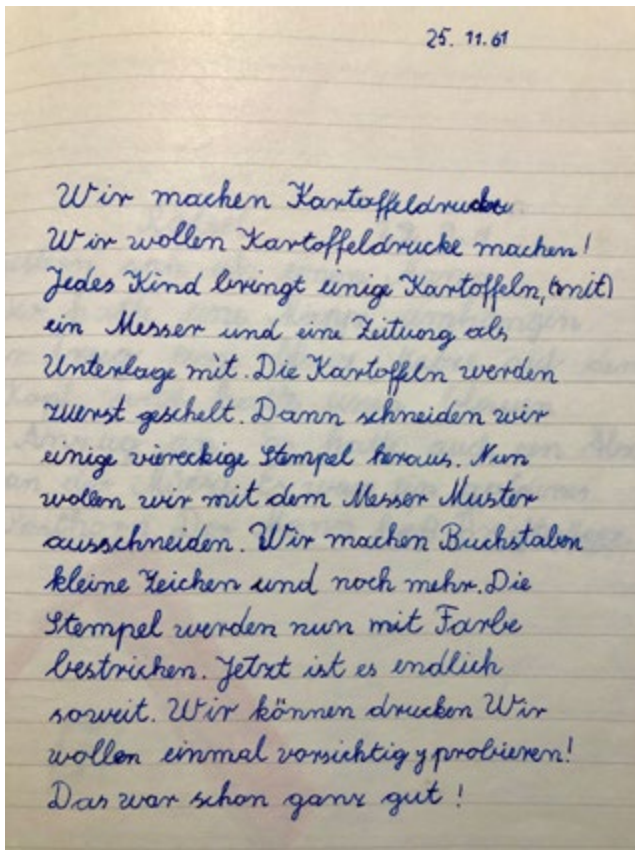 25. 11. 61
Wir machen Kartoffeldrucke
Wir wollen Kartoffeldrucke machen!
Jedes Kind bringt einige Kartoffeln, (mit)
ein Messer und eine Zeitung als
Unterlage mit. Die Kartoffeln werden
zuerst geschelt. Dann schneiden wir
einige viereckige Stempel heraus. Nun
wollen wir mit dem Messer Muster
ausschneiden. Wir machen Buchstaben
kleine Zeichen und noch mehr. Die
Stempel werden nun mit Farbe
bestrichen. Jetzt ist es endlich
soweit. Wir können drucken Wir
wollen einmal vorsichtig probieren!
Das war schon ganz gut!